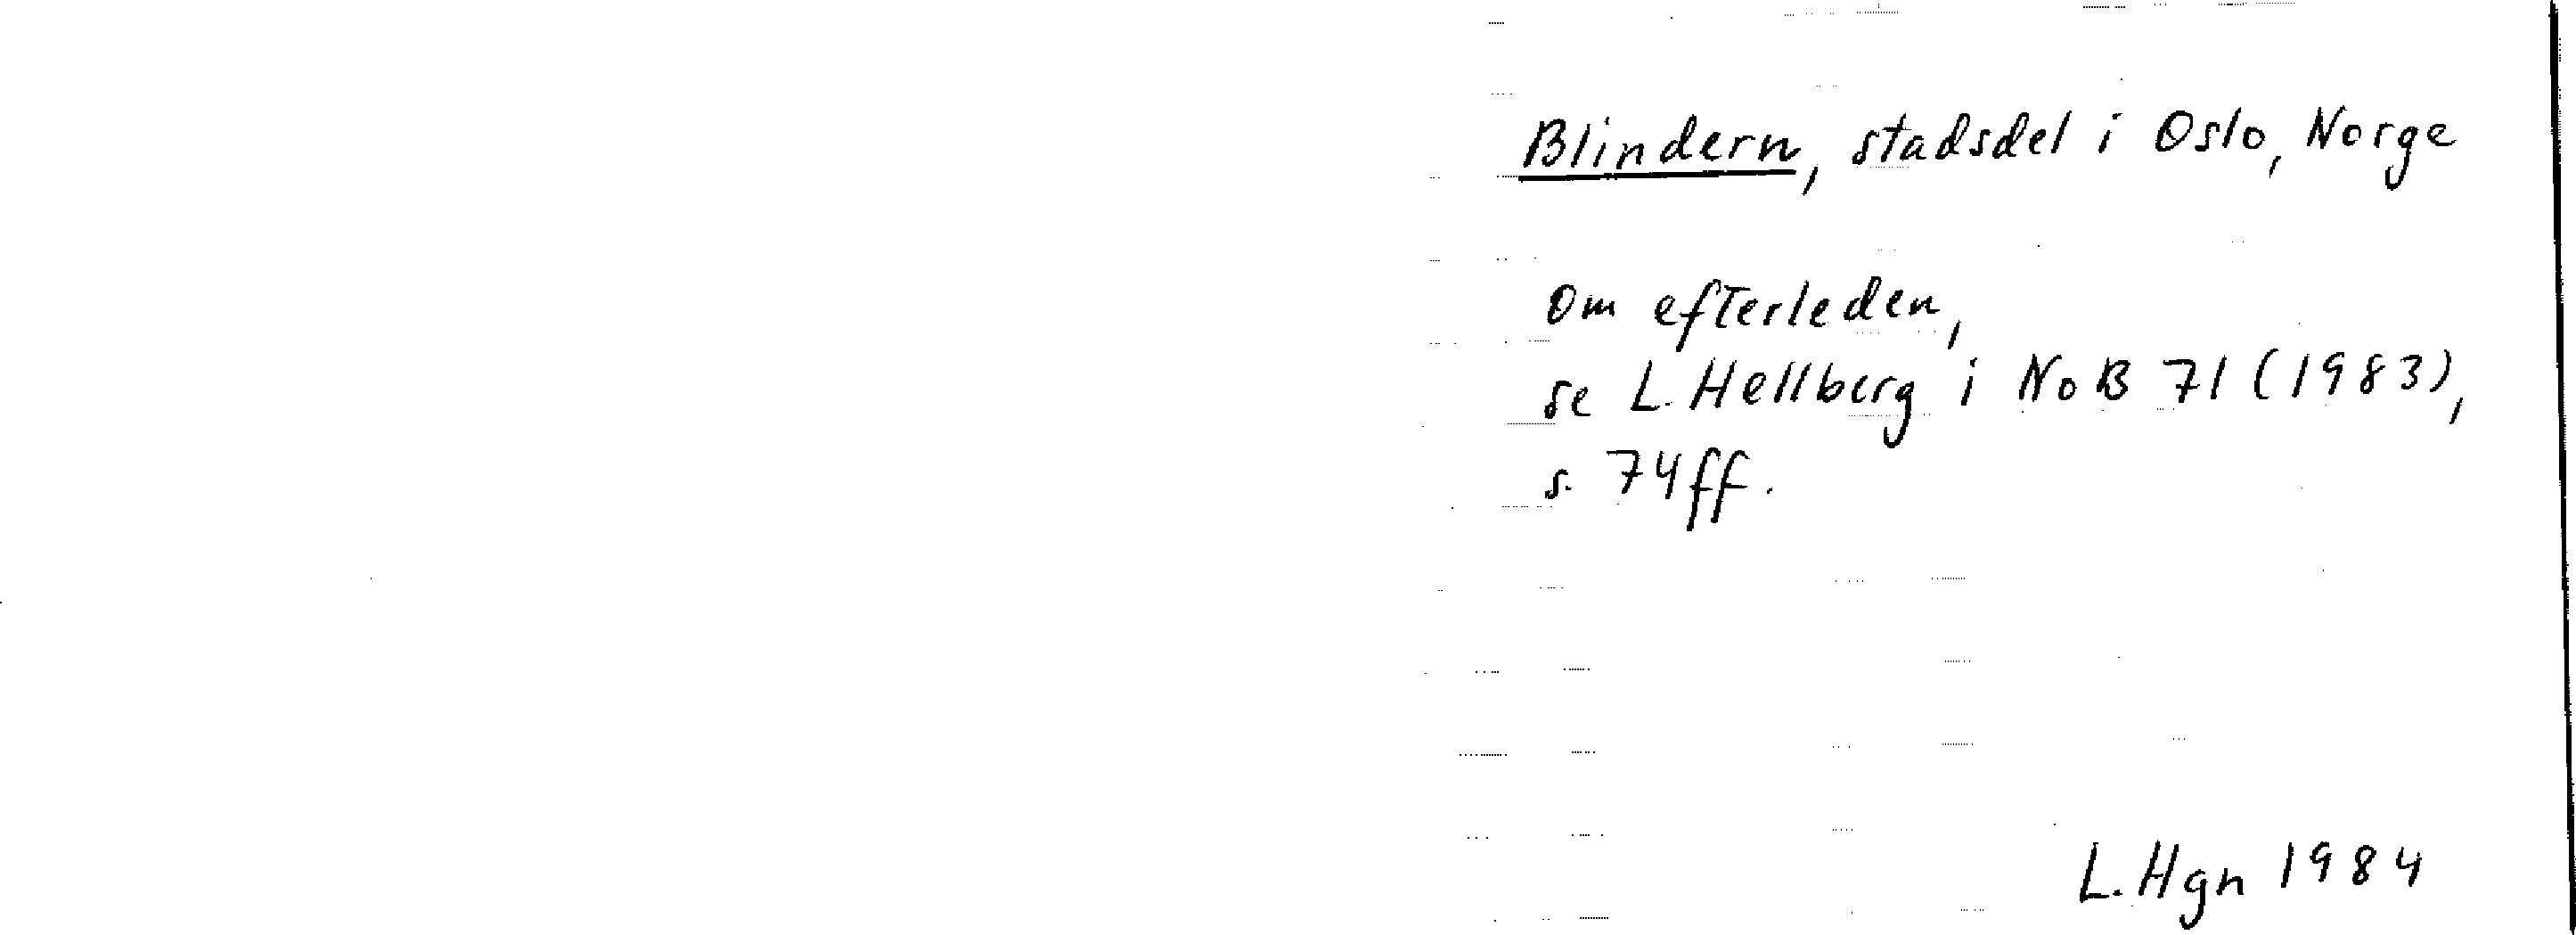 Blindern, stadsdel i Oslo, Norge
Om efterleden,
se L. Hellberg i NoB 71 (1983),
s. 74ff.
L. Hgn 1984